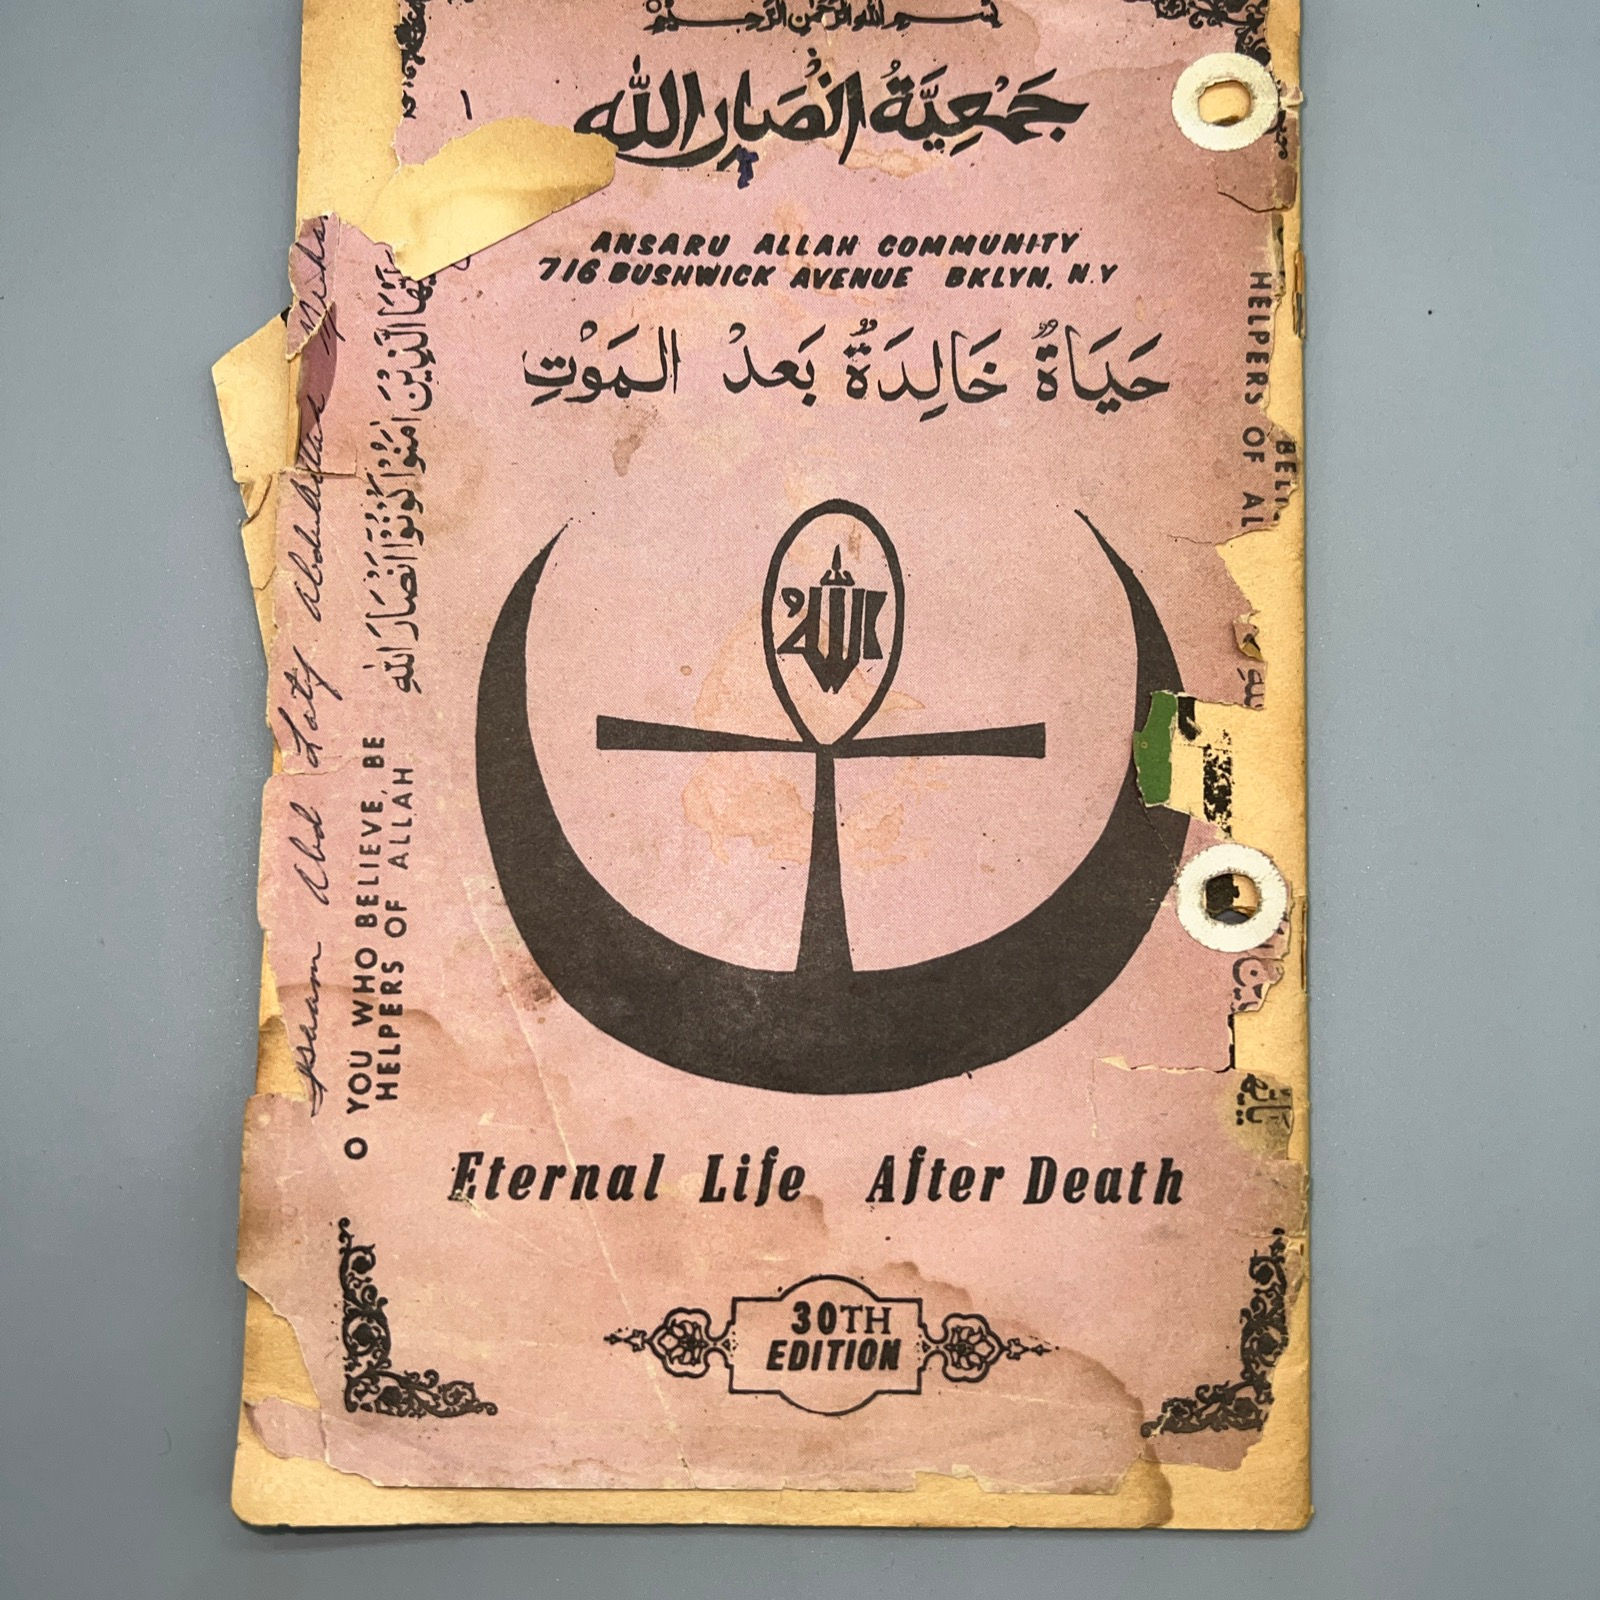 بِسْمِ اللهِ الرَّحْمٰنِ الرَّحِيْمِ
جَمْعِيَّةُ انْصَارِ اللّٰه
ANSARU ALLAH COMMUNITY
716 BUSHWICK AVENUE BKLYN, N.Y
حَيَاةٌ خَالِدَةٌ بَعدْ المَوْتِ
الَّذِيْنَ امَنُوْا كُوْنُوْا انْصَارَ اللهِ
O YOU WHO BELIEVE, BE
HELPERS OF ALLAH
Abd Latif Abdullah
HELPERS OF AL
BELI
اللّٰهُ
Eternal Life After Death
30TH
EDITION